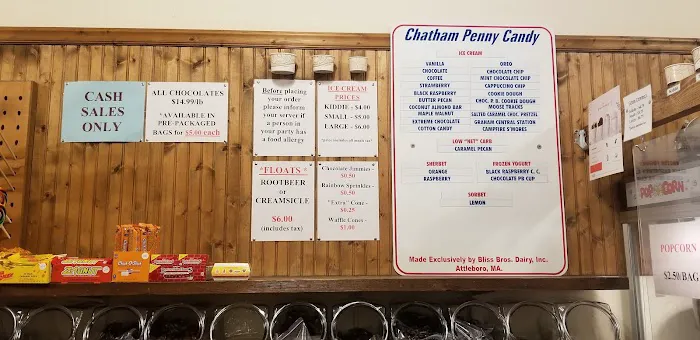 CASH
SALES
ONLY
ALL CHOCOLATES
$14.99/lb
*AVAILABLE IN
PRE-PACKAGED
BAGS for $5.00 each
Before placing
your order
please inform
your server if
a person in
your party has
a food allergy
ICE CREAM
PRICES
KIDDIE - $4.00
SMALL - $5.00
LARGE - $6.00
*FLOATS*
ROOTBEER
or
CREAMSICLE
$6.00
(includes tax)
Chocolate Jimmies-
$0.50
Rainbow Sprinkles-
$0.50
"Extra" Cone -
$0.25
Waffle Cones -
$1.00
Chatham Penny Candy
ICE CREAM
VANILLA
CHOCOLATE
COFFEE
STRAWBERRY
BLACK RASPBERRY
BUTTER PECAN
COCONUT ALMOND BAR
MAPLE WALNUT
EXTREME CHOCOLATE
COTTON CANDY
OREO
CHOCOLATE CHIP
MINT CHOCOLATE CHIP
CAPPUCINO CHIP
COOKIE DOUGH
CHOC. P.B. COOKIE DOUGH
MOOSE TRACKS
SALTED CARAMEL CHOC. PRETZEL
GRAHAM CENTRAL STATION
CAMPFIRE S'MORES
LOW "NET" CARB
CARAMEL PECAN
SHERBET
ORANGE
RASPBERRY
FROZEN YOGURT
BLACK RASPBERRY C. C.
CHOCOLATE PB CUP
SORBET
LEMON
Made Exclusively by Bliss Bros. Dairy, Inc.
Attleboro, MA.
POPCORN
$2.50/BAG